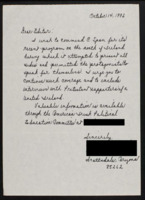 October 14, 1982
Dear Editor:
I wish to commend C-Span for its
recent program on the South of Ireland
during which it attempted to present all
sides and permitted the protagonists to
speak for themselves. I urge you to
continue such coverage and to include
interviews with Protestant supporters of a
United Ireland.
Valuable information is available
through the American Irish Political
Education Committee at
Sincerely
Scottsdale, Arizona
85252